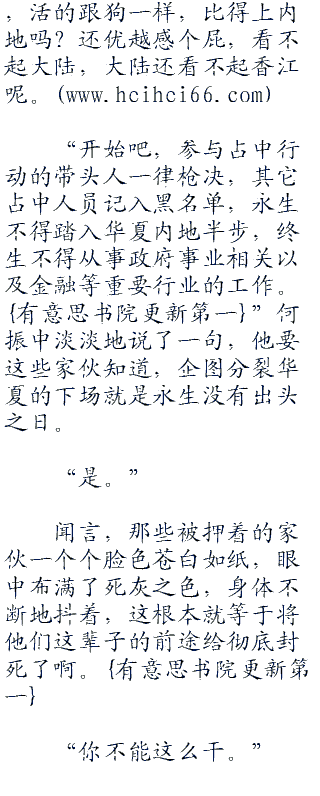 ，活的跟狗一样，比得上内
地吗？还优越感个屁，看不
起大陆，大陆还看不起香江
呢。(www.hcihci66.com)
“开始吧，参与占中行
动的带头人一律枪决，其它
占中人员记入黑名单，永生
不得踏入华夏内地半步，终
生不得从事政府事业相关以
及金融等重要行业的工作。
{有意思书院更新第一}”何
振中淡淡地说了一句，他要
这些家伙知道，企图分裂华
夏的下场就是永生没有出头
之日。
“是。”
闻言，那些被押着的家
伙一个个脸色苍白如纸，眼
中布满了死灰之色，身体不
断地抖着，这根本就等于将
他们这辈子的前途给彻底封
死了啊。{有意思书院更新第
一}
“你不能这么干。”